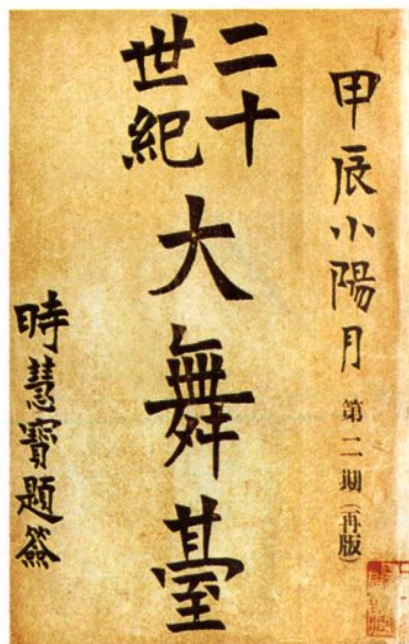 甲辰小陽月 第二期（再版）
二十
世紀
大舞臺
時慧寶題簽